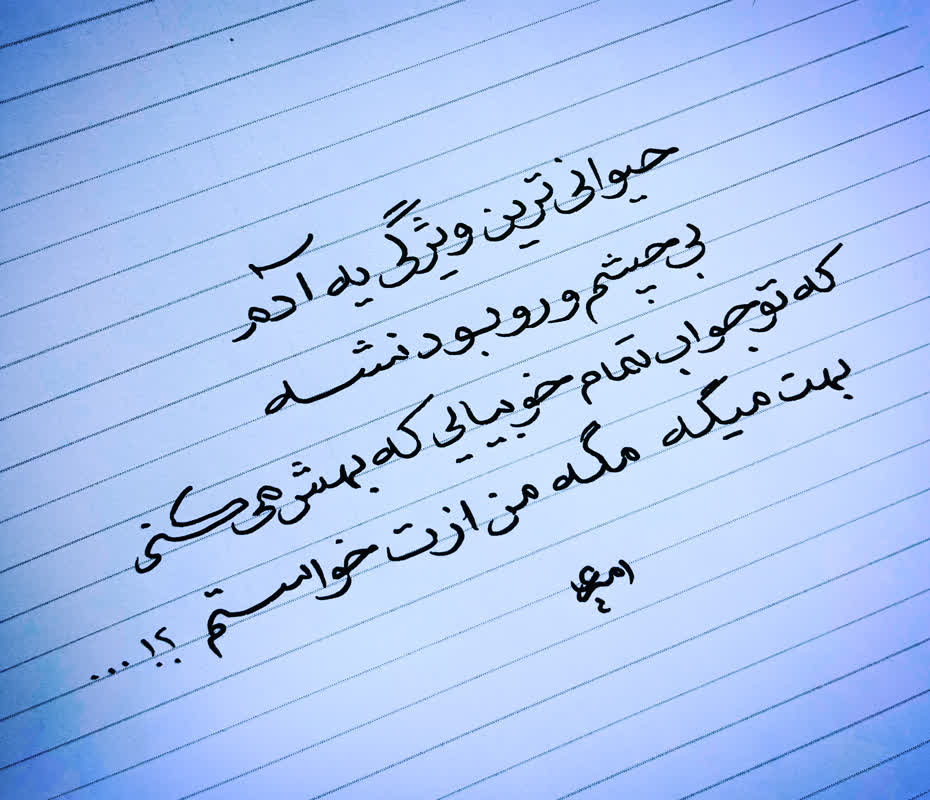 حیوانی ترین ویژگی یه آدم
بی چشم و رو بودنشه
که تو جواب تمام خوبیایی که بهش می کنی
بهت میگه مگه من ازت خواستم ؟! ...